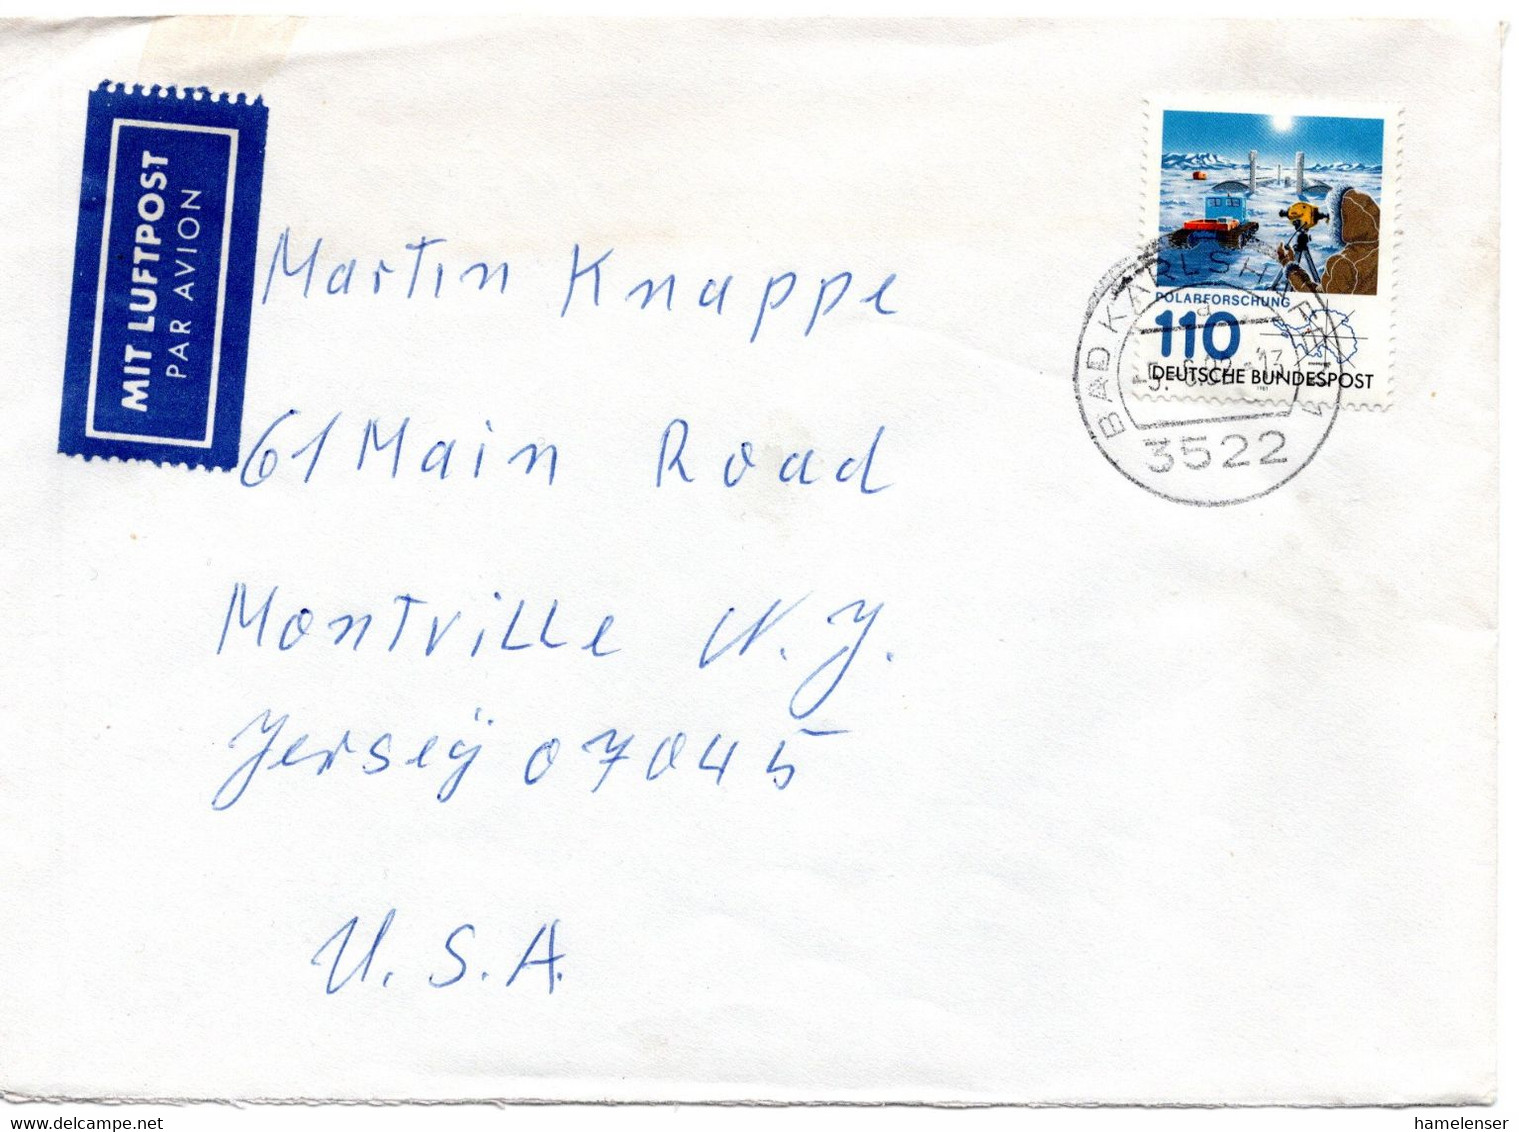 MIT LUFTPOST
PAR AVION
POLARFORSCHUNG
110
DEUTSCHE BUNDESPOST
1981
BAD KARLSHAFEN 1
a
-5.-6.82-13
3522
Martin Knappe
61 Main Road
Montville N.J.
Jerseÿ 07045
U.S.A.
hamelenser